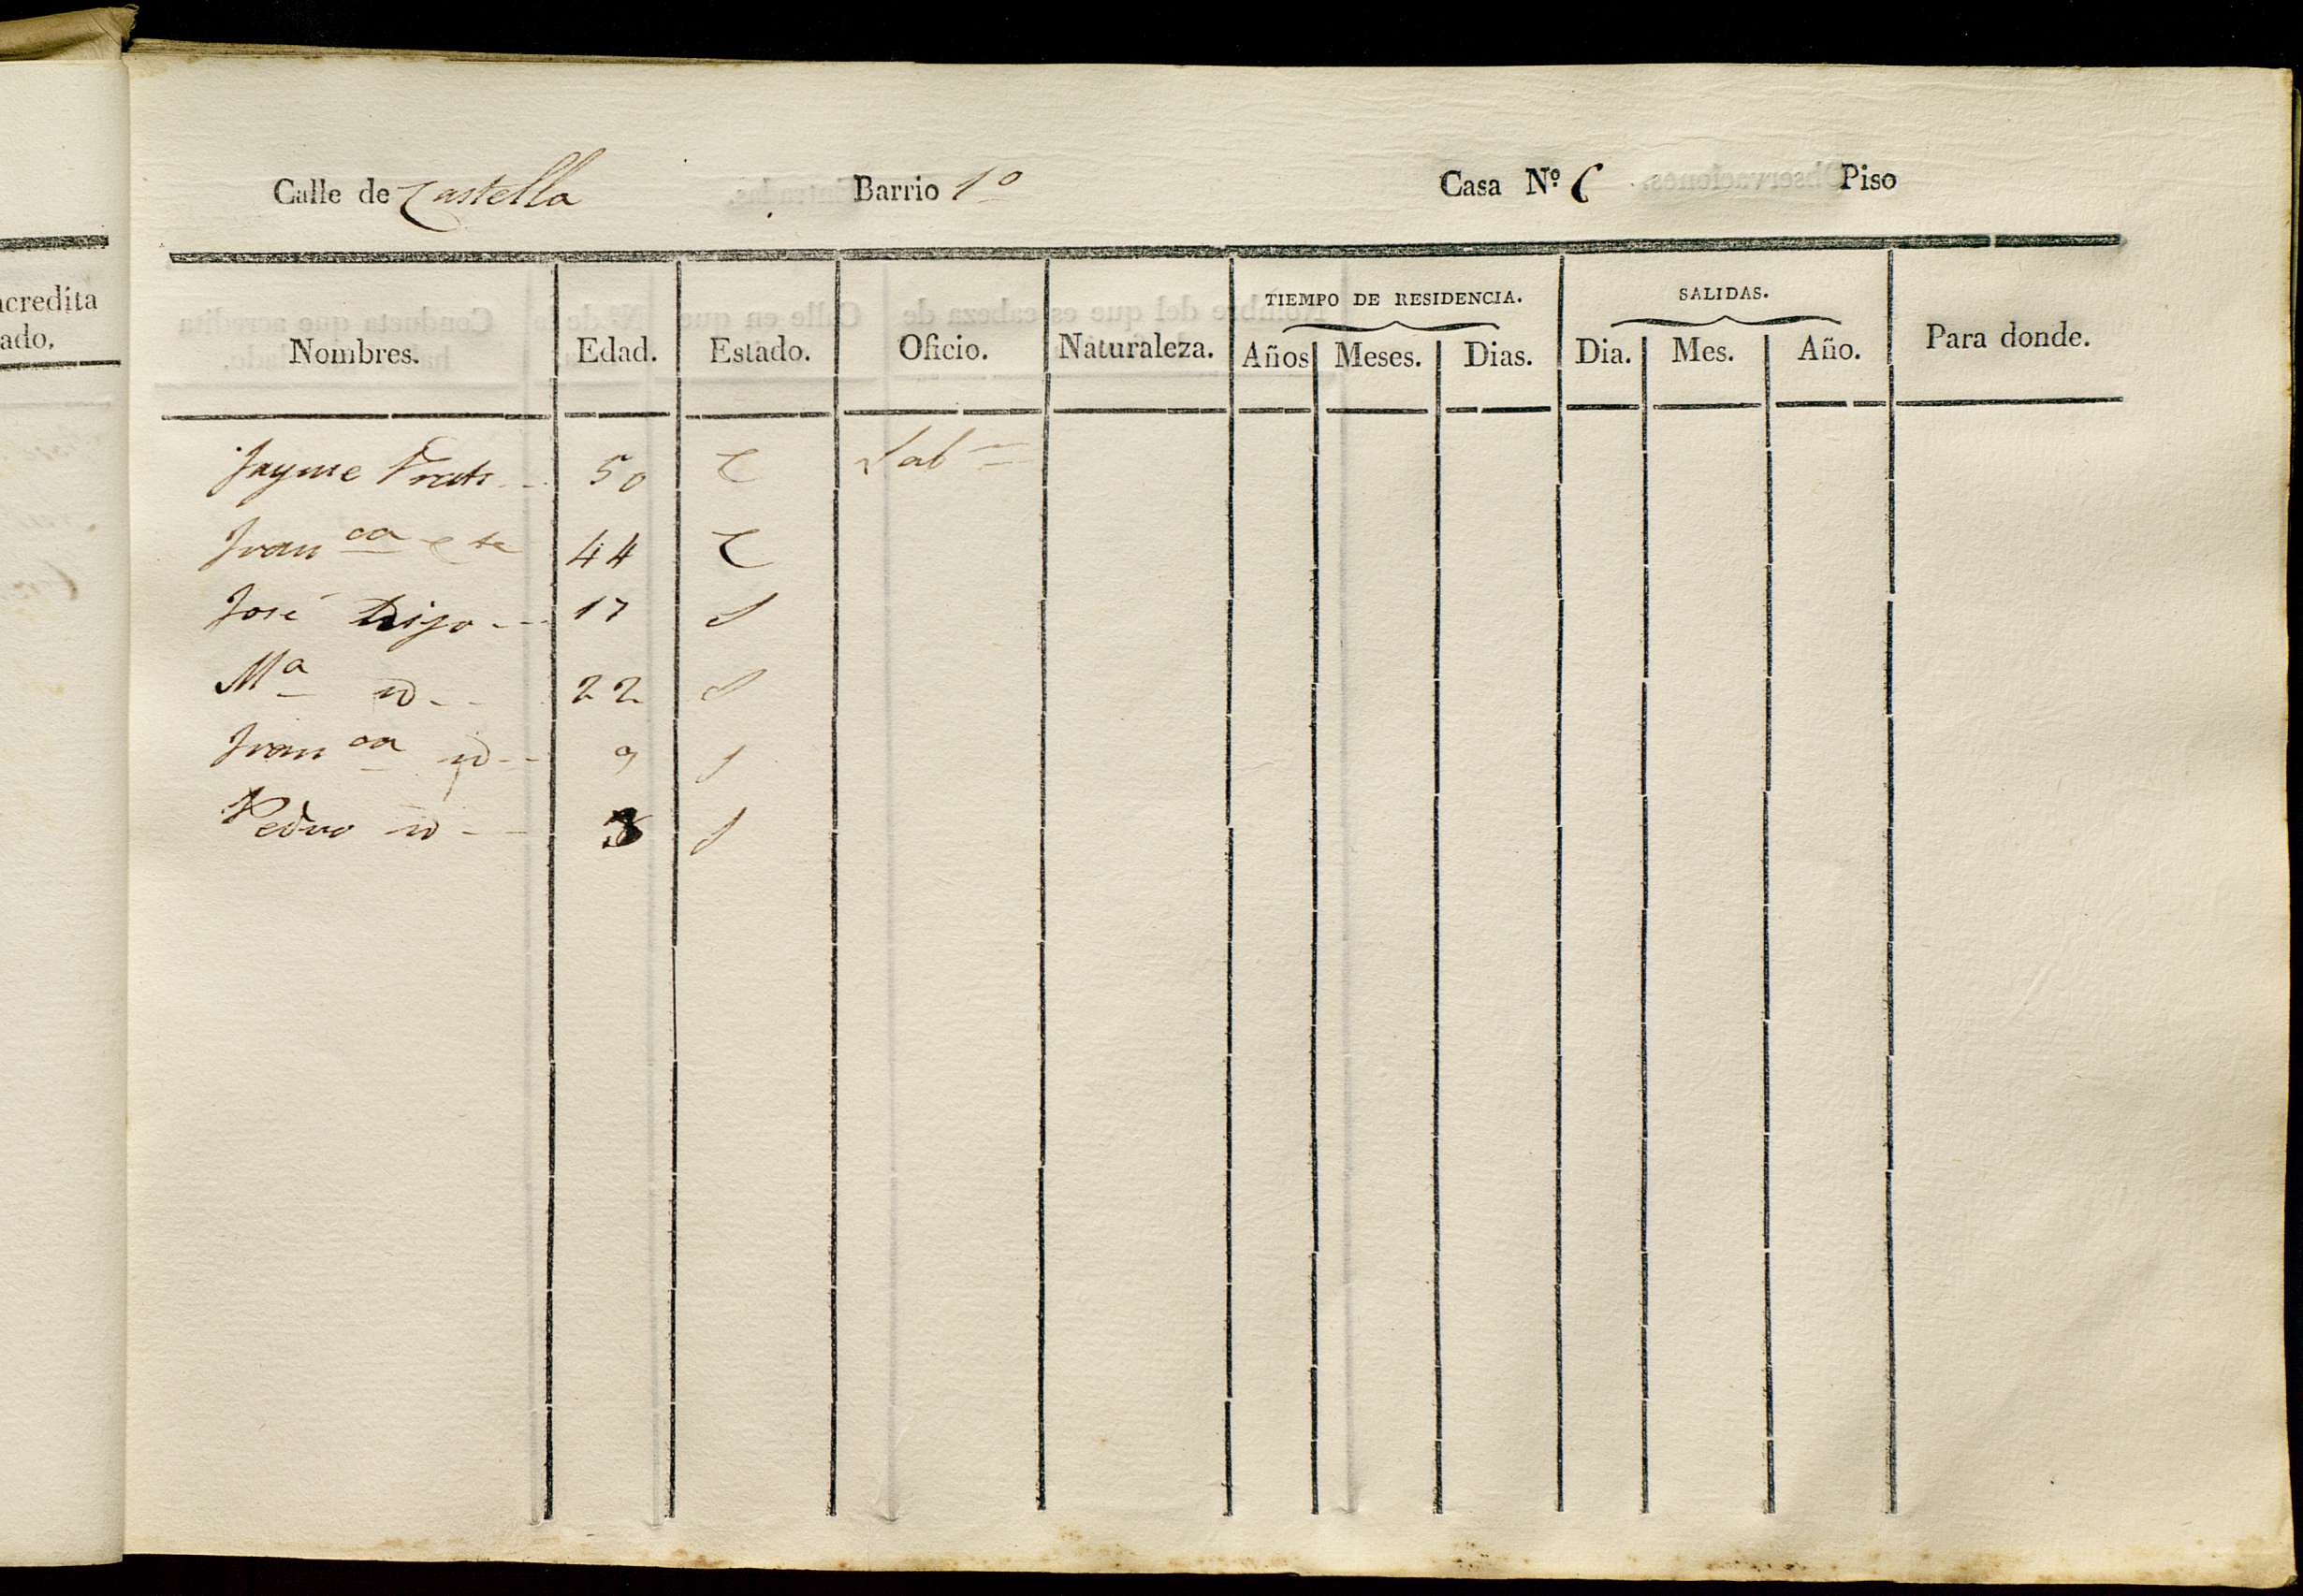 acredita
ado.
Calle de Castella Barrio 1º Casa Nº 6 Piso
TIEMPO DE RESIDENCIA. SALIDAS.
Nombres. Edad. Estado. Oficio. Naturaleza. Años Meses. Dias. Dia. Mes. Año. Para donde.
Jayme Prats 50 C Labr
Franca 44 C
José hijo 17 S
Mª id 22 S
Franca id 9 S
Pedro id S